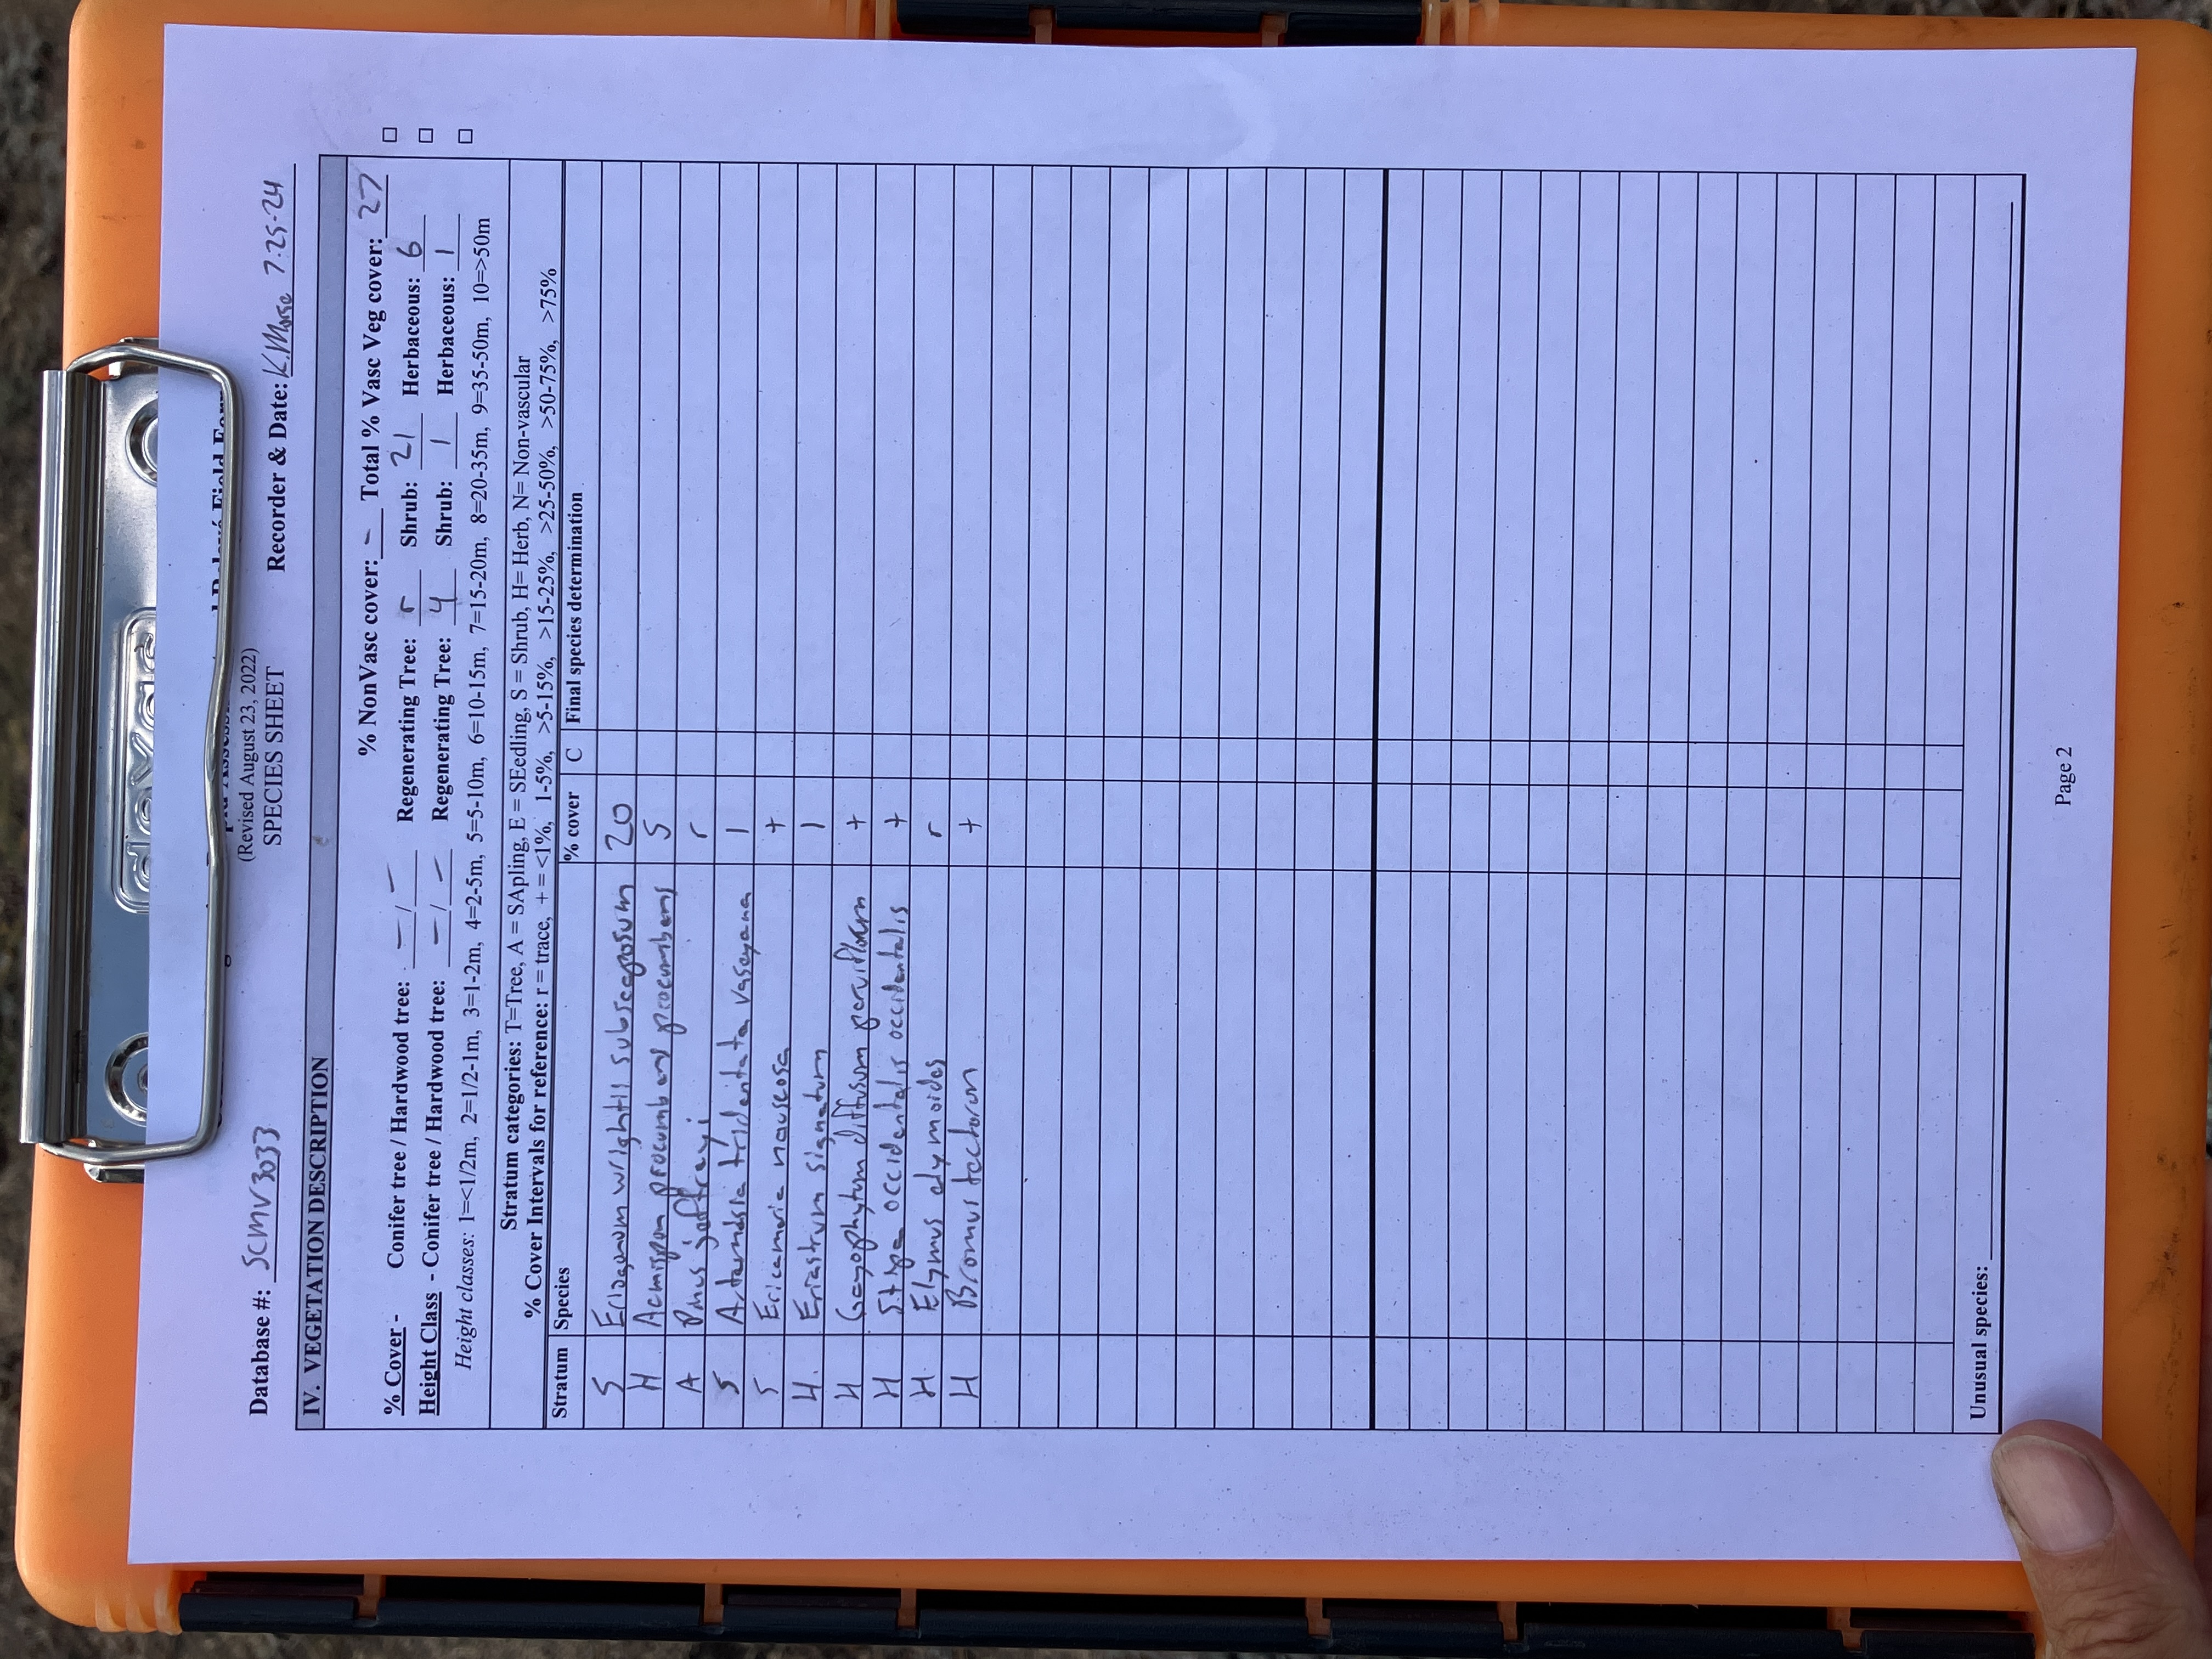 (Revised August 23, 2022)
SPECIES SHEET
Database #: SCMV3033 Recorder & Date: K.Morse 7-25-24
IV. VEGETATION DESCRIPTION
% NonVasc cover: - Total % Vasc Veg cover: 27
% Cover - Conifer tree / Hardwood tree: - / - Regenerating Tree: r Shrub: 21 Herbaceous: 6
Height Class - Conifer tree / Hardwood tree: - / - Regenerating Tree: 4 Shrub: 1 Herbaceous: 1
Height classes: 1=<1/2m, 2=1/2-1m, 3=1-2m, 4=2-5m, 5=5-10m, 6=10-15m, 7=15-20m, 8=20-35m, 9=35-50m, 10=>50m
Stratum categories: T=Tree, A = SApling, E = SEedling, S = Shrub, H= Herb, N= Non-vascular
% Cover Intervals for reference: r = trace, + = <1%, 1-5%, >5-15%, >15-25%, >25-50%, >50-75%, >75%
Stratum Species % cover C Final species determination
S Eriogonum wrightii subscaposum 20
H Acmispon procumbens procumbens 5
A Pinus jeffreyi r
S Artemisia tridentata vaseyana 1
S Ericameria nauseosa +
H. Eriastrum signatum 1
H Gayophytum diffusum parviflorum +
H Stipa occidentalis occidentalis +
H. Elymus elymoides r
H Bromus tectorum +
Unusual species:
Page 2